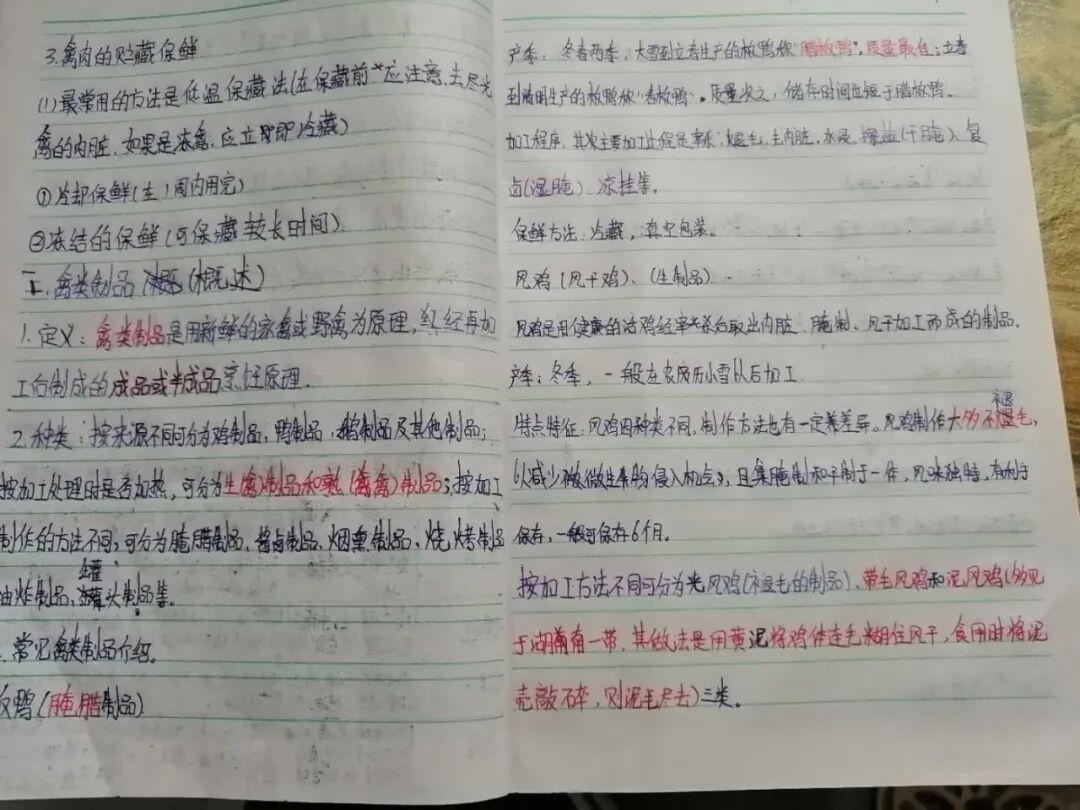 3.禽肉的贮藏保鲜
(1)最常用的方法是低温保藏法(在保藏前应注意,去尽光
禽的内脏,如果是冻禽,应立即冷藏)
①冷却保鲜(在1周内用完)
②冻结的保鲜(可保藏较长时间).
二.禽类制品(概述)
1.定义:禽类制品是用新鲜的家禽或野禽为原理,经再加
工后制成的成品或半成品烹饪原理.
2.种类:按来源不同可分为鸡制品、鸭制品、鹅制品及其他制品;
按加工处理时是否加热,可分为生禽制品和熟(禽)制品;按加工
制作的方法不同,可分为腌腊制品、酱卤制品、烟熏制品、烧烤制品
油炸制品、罐头制品等.
.常见禽类制品介绍.
板鸭(腌腊制品)
产季:冬春两季,大雪到立春生产的板鸭称"腊板鸭",质量最佳;立春
到清明生产的板鸭称"春板鸭"。质量次之,储存时间也短于腊板鸭。
加工程序,其主要加工过程是宰杀,煺毛,去内脏,水浸,擦盐(干腌)、复
卤(湿腌)、凉挂等。
保鲜方法:冷藏,真空包装。
风鸡(风干鸡)、(生制品)
风鸡是用健康的活鸡经宰杀后取出内脏、腌制、风干加工而成的制品。
产季:冬季,一般在农历小雪以后加工.
特点特征:风鸡因种类不同,制作方法也有一定差异。风鸡制作大多不煺毛,
以减少微生物侵入机点,且集腌制和干制于一件,风味独特,有利于
保存,一般可保存6个月。
按加工方法不同可分为光风鸡(褪毛的制品)、带毛风鸡和泥风鸡(多见
于湖南一带,其做法是用黄泥将鸡体连毛糊住风干,食用时将泥
壳敲碎,则泥毛尽去)三类。